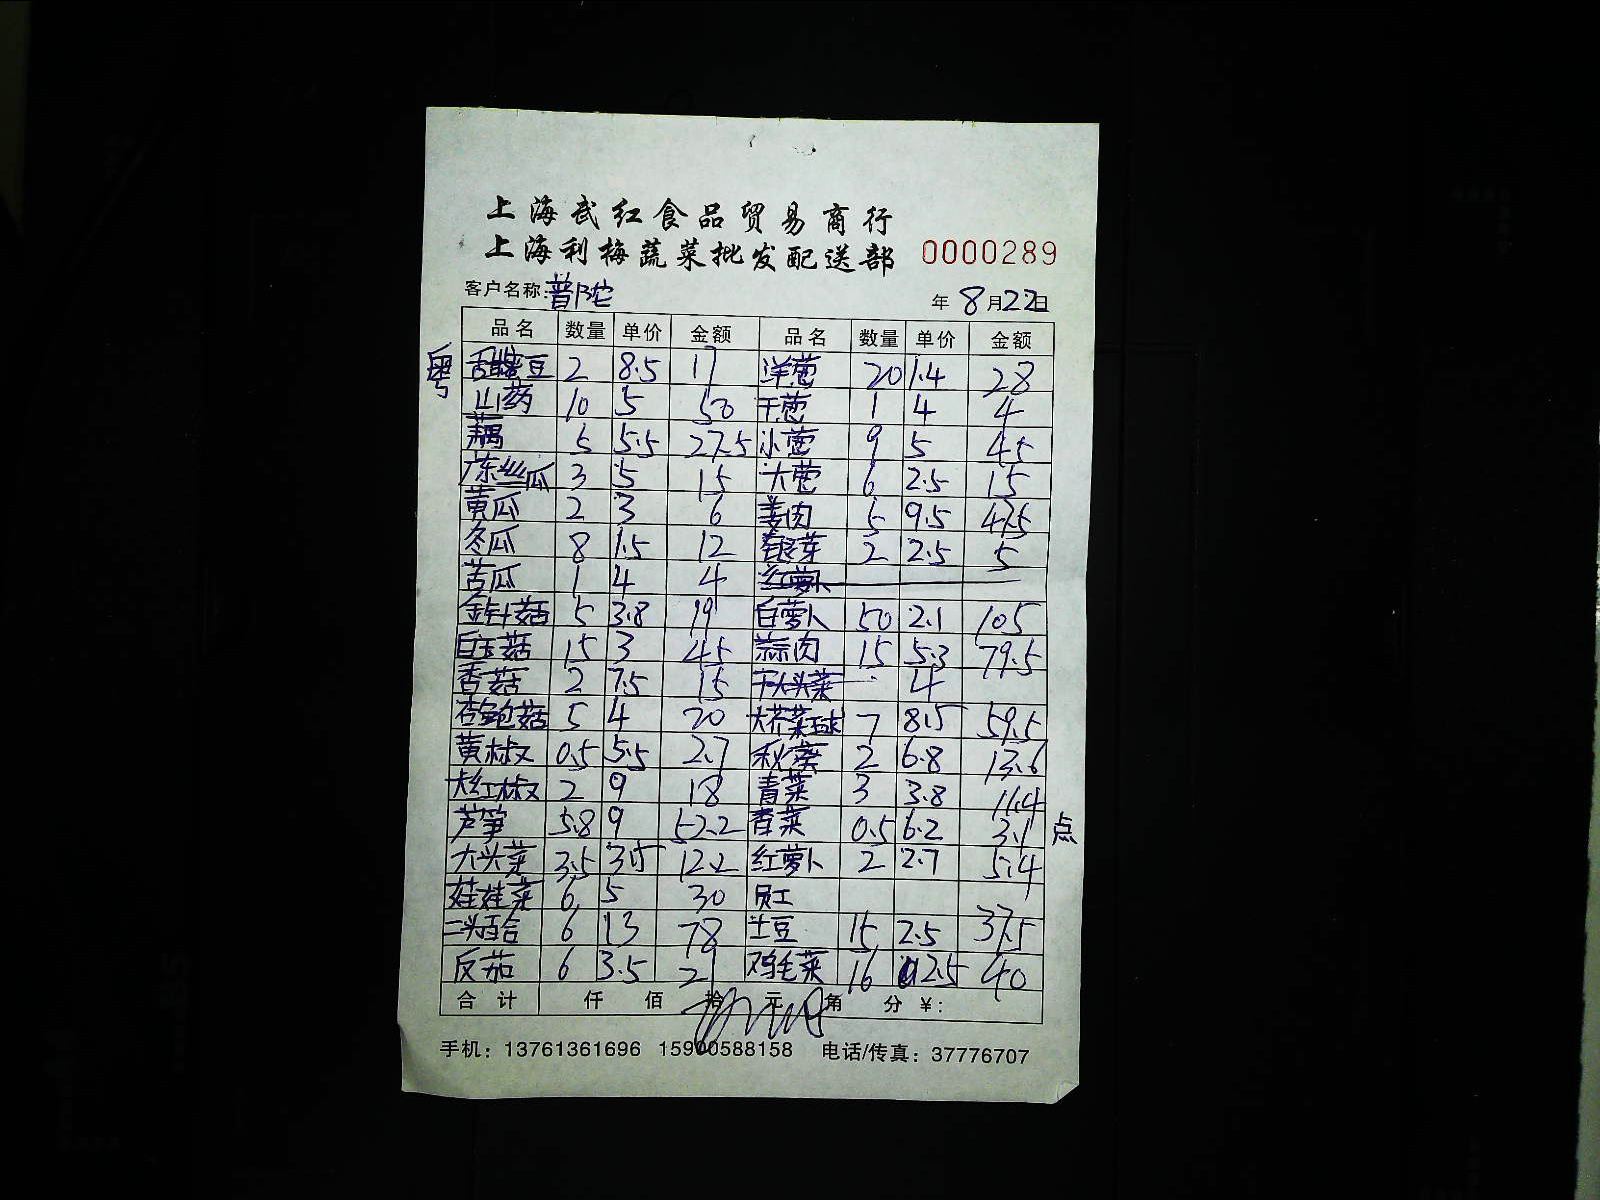 上海武红食品贸易商行
上海利梅蔬菜批发配送部 0000289
客户名称:普陀 年 8月22日
品名 数量 单价 金额 品名 数量 单价 金额
粤 豆 2 8.5 17 洋葱 20 1.4 28
山药 10 5 50 干葱 1 4 4
藕 5 5.5 27.5 小葱 9 5 45
广东丝瓜 3 5 15 大葱 6 2.5 15
黄瓜 2 3 6 姜肉 5 9.5 47.5
冬瓜 8 1.5 12 银芽 2 2.5 5
苦瓜 1 4 4 红萝卜
金针菇 5 3.8 19 白萝卜 50 2.1 105
白玉菇 15 3 45 蒜肉 15 5.3 79.5
香菇 2 7.5 15 干大头菜 4
杏鲍菇 5 4 20 大芥菜球 7 8.5 59.5
黄椒 0.5 5.5 2.7 秋葵 2 6.8 13.6
大红椒 2 9 18 青菜 3 3.8 11.4
芦笋 5.8 9 52.2 香菜 0.5 6.2 3.1 点
大头菜 3.5 3.5 12.2 红萝卜 2 2.7 5.4
娃娃菜 6 5 30 员工
二头百合 6 13 78 土豆 15 2.5 37.5
反茄 6 3.5 21 鸡毛菜 16 2.5 40
合计 仟 佰 拾 元 角 分 ¥:
手机: 13761361696 15900588158 电话/传真: 37776707